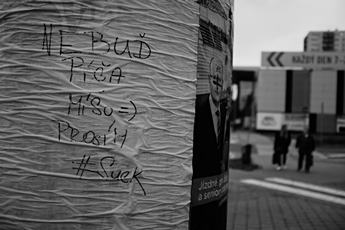 NE BUĎ
PíČA
MíŠU =)
PROSíM
#Suck
KAŽDÝ DEN 7-
Jízdné
a senior